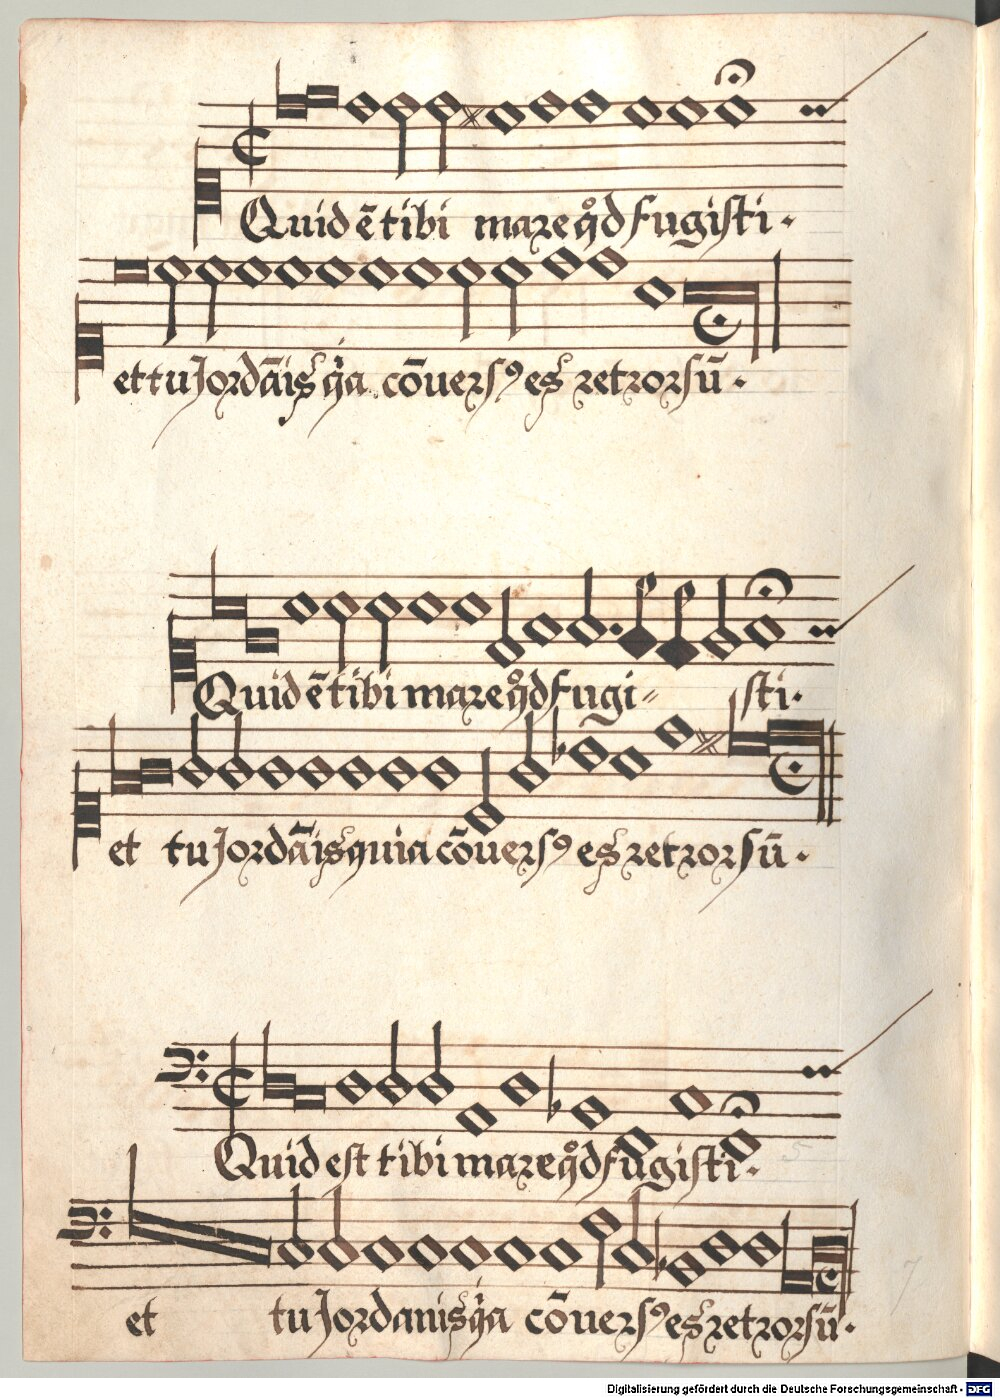 Quid ē tibi mare qͦd fugisti.
et tu Jordāis qia cōuersꝰ es retrorsū.
Quid ē tibi mare qͦd fugi= sti.
et tu Jordāis quia cōuersꝰ es retrorsū.
Quid est tibi mare qͦd fugisti.
et tu Jordanis qia cōuersꝰ es retrorsū.
5
7
Digitalisierung gefördert durch die Deutsche Forschungsgemeinschaft - DFG